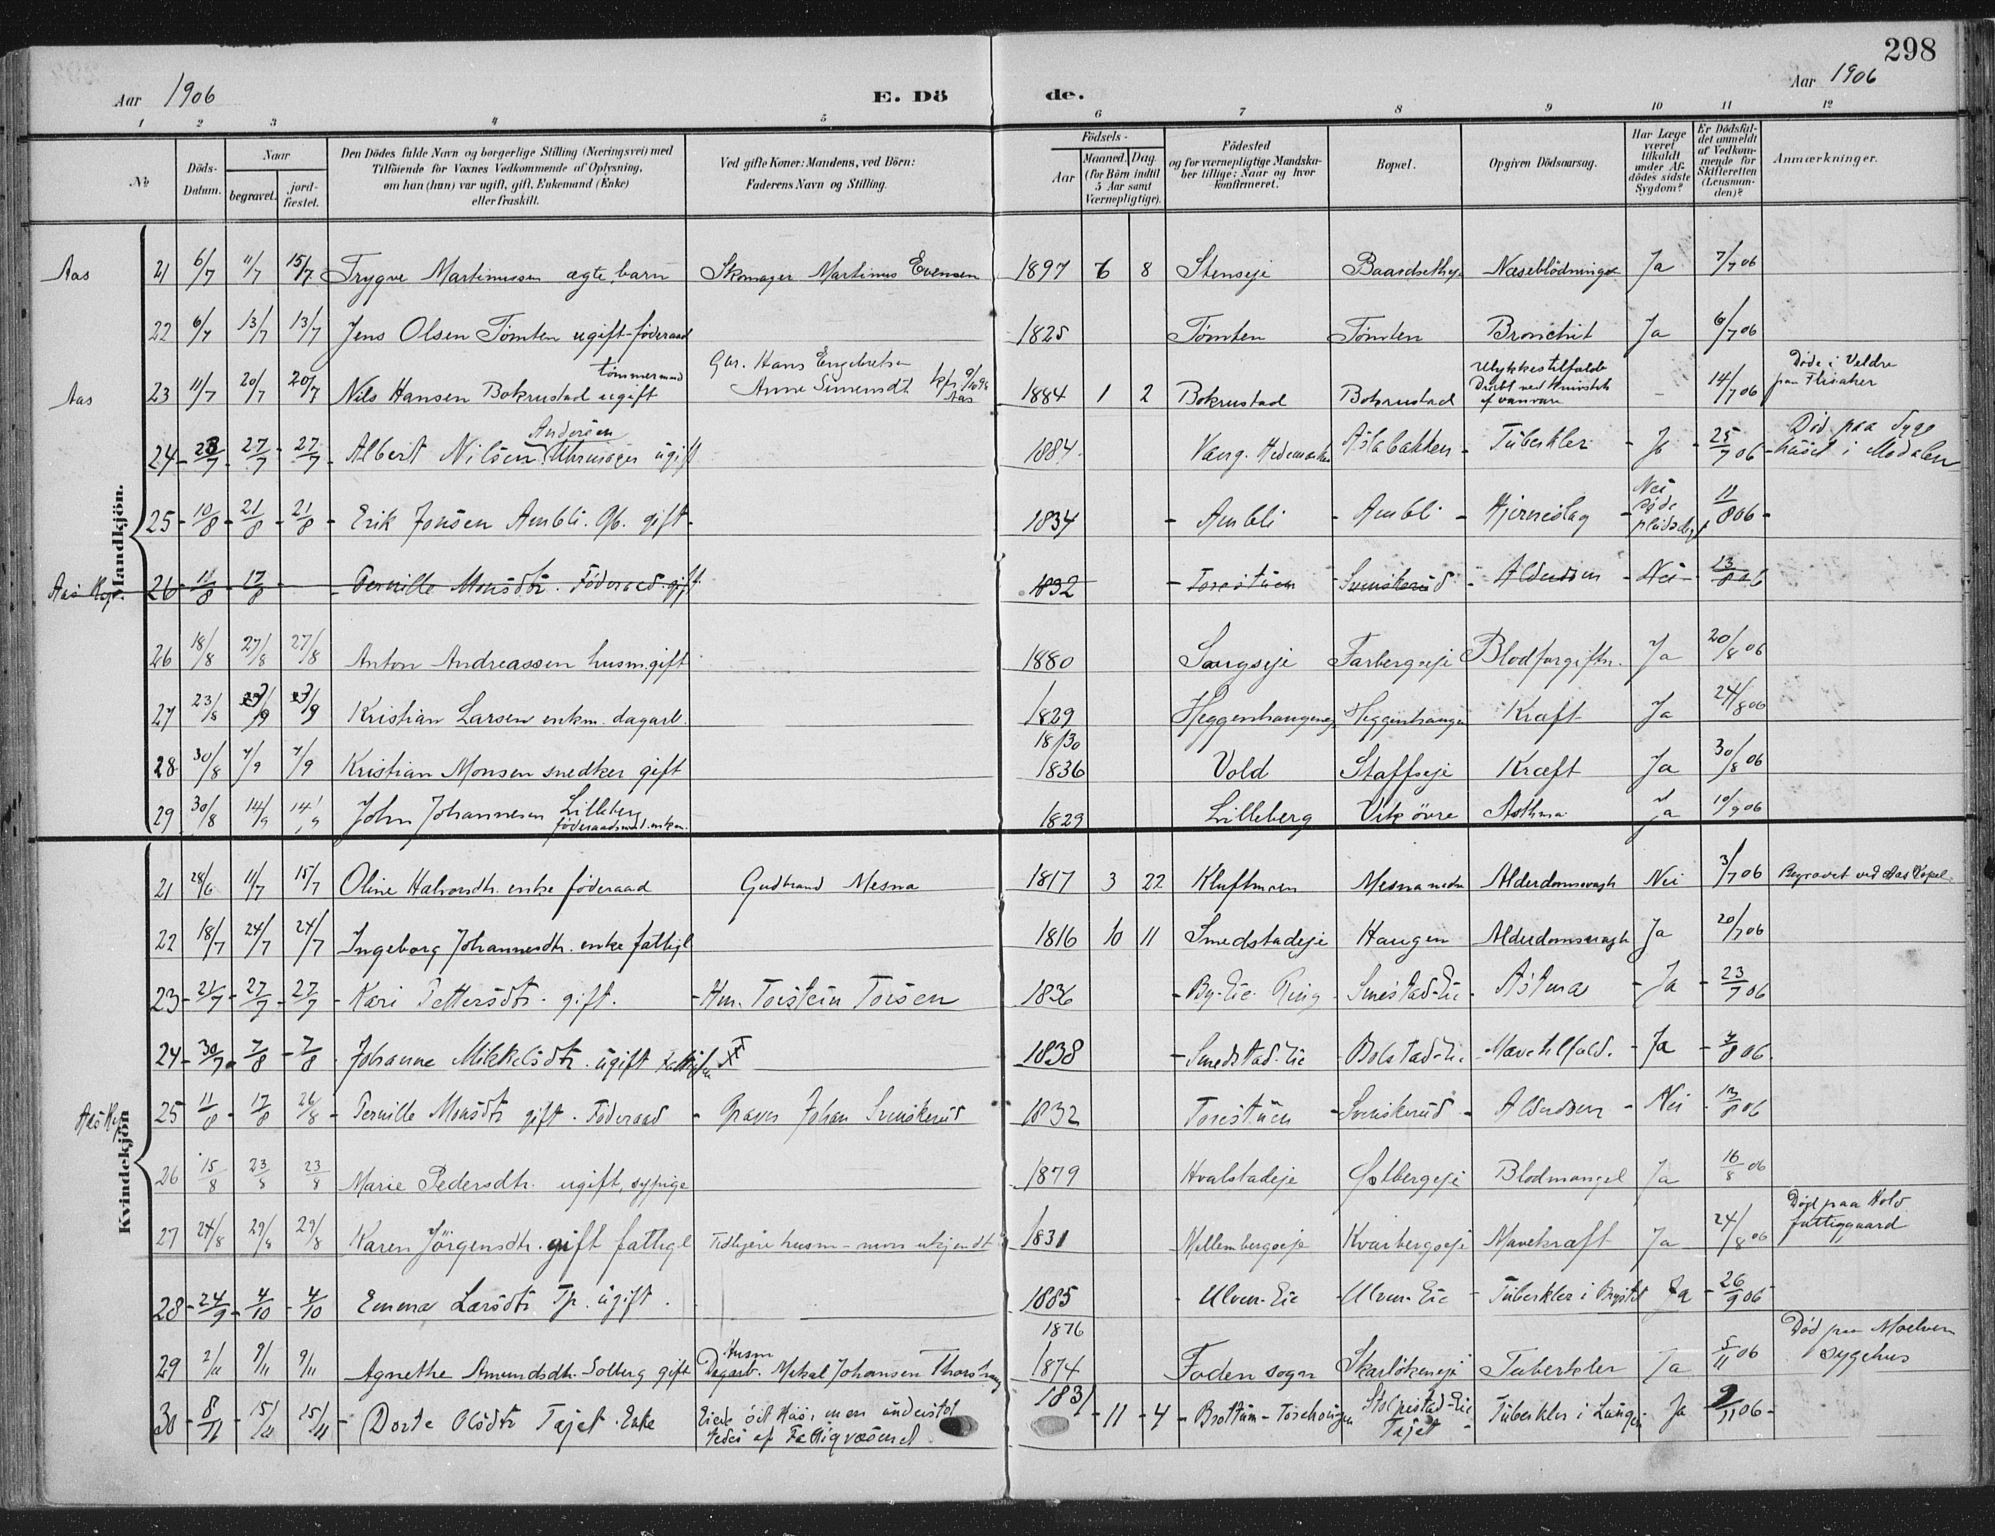 298
Aar 1906
E. Dö
de.
Aar 1906
1 2 3 4 5 6 7 8 9 10 11 12
No
Döds-Datum.
Naar
begravet.
jord-fæstet.
Den Dödes fulde Navn og borgerlige Stilling (Næringsvei) med
Tilföiende for Voxnes Vedkommende af Oplysning,
om han (hun) var ugift, gift, Enkemand (Enke)
eller fraskilt.
Ved gifte Koner: Mandens, ved Börn:
Faderens Navn og Stilling.
Födsels-
Aar
Maaned. Dag.
(for Börn indtil
5 Aar samt
Værnepligtige).
Födested
og for værnepligtige Mandska-
ber tillige: Naar og hvor
konfirmeret.
Bopæl.
Opgiven Dödsaarsag.
Har Læge
været
tilkaldt
under Af-
dödes sidste
Sygdom?
Er Dödsfal-
det anmeldt
af Vedkom-
mende for
Skifteretten
(Lensman-
den)?
Anmærkninger.
Mandkjön.
Aas 21 6/7 11/7 15/7 Trygve Martinussen ægte, barn Skomager Martinus Evensen 1897 6 8 Stenseje Baardsetheje Næseblödninger Ja 7/7 06
22 6/7 13/7 13/7 Jens Olsen Tömten ugift föderaad 1825 Tömten Tömten Bronchit Ja 6/7 06
Aas 23 11/7 20/7 20/7 Nils Hansen Bokrustad ugift tømmermand Gbr. Hans Engebretsen Anne Simensdt 1884 1 2 Bokrustad Bokrustad Ulykkestilfælde - 14/7 06 Døde i Veldre paa Flisaker
24 23/7 27/7 27/7 Albert Nilsen Andersen Uhrmager ugift 1884 Vang. Hedemarken Aslabakken Tuberkler Ja 25/7 06 Död paa Syge huset i Modalen
25 10/8 21/8 21/8 Erik Jonsen Ambli. Gb. gift 1834 Ambli Ambli Hjerneslag Nei Døde pludselig 11/8 06
Aas Kp. 26 11/8 17/8 Pernille Monsdtr. Föderaad gift 1832 Torestuen Svenskerud Alderdom Nei 13/8 06
26 18/8 27/8 27/8 Anton Andreassen husm. gift 1880 Saugseje Farbergseje Blodforgiftn. Ja 20/8 06
27 23/8 Kristian Larsen enkm. dagarb. 1829 Heggenhaugeneje Heggenhaugen Kræft Ja 24/8 06
28 30/8 7/9 7/9 Kristian Monsen snedker gift 18/130 1836 Vold Staffseje Kræft Ja 30/8 06
29 30/8 14/9 14/9 John Johannesen Lilleberg föderaadsmd. enkem. 1829 Lilleberg Vik övre Asthma Ja 10/9 06
Kvindekjön
21 28/6 11/7 15/7 Oline Halvorsdtr. enke föderaad Gudbrand Mesna 1817 3 22 Kluftmoen Mesna nedre Alderdomssvagh Nei 3/7 06 Begravet ved Aas Kapel
22 18/7 24/7 24/7 Ingeborg Johannesdtr. enke fattigl 1816 10 11 Smedstadeje Haugen Alderdomssvagh Ja 20/7 06
23 21/7 27/7 27/7 Kari Pettersdtr. gift. Hm. Torstein Torsen 1836 By-Eie Ring Smestad-Eie Astma Ja 23/7 06
24 30/7 7/8 7/8 Johanne Mikkelsdtr. ugift 1838 Smedstad-Eie Bolstad-Eie Ja 2/8 06
Aas Kp. 25 11/8 17/8 26/8 Pernille Monsdtr gift. Föderaad Johan Svenskerud 1832 Torestuen Svenskerud Alderdom Nei 13/8 06
26 15/8 23/8 23/8 Marie Pedersdtr. ugift, sypige 1879 Hvalstadeje Solbergeje Blodmangel Ja 16/8 06
27 24/8 29/8 29/8 Karen Jörgensdtr. gift fattigl Tidligere husm. navn ukjendt 1831 Mellembergseje Kvarbergseje Mavekræft Ja 24/8 06 Død paa Hols fattiggaard
28 24/9 4/10 4/10 Emma Larsdtr Tp. ugift. 1885 Ulven-Eie Ulven-Eie Tuberkler i Brystet Ja 26/9 06
29 2/11 9/11 9/11 Agnethe Amundsdtr. Solberg gift Husm Dagarb. Mikal Johansen 1876 1874 Faden sogn Skarlökeneje Tuberkler Ja 5/11 06 Död paa Moelven sygehus
30 8/11 15/11 15/11 Dorte Olsdtr Tajet. Enke Eiede sit Hus, men understöt tedes af Fattigvæsenet 1831 11 4 Brøttum Stolpestad-Eie Tajet Tuberkler i Lungen Ja 9/11 06